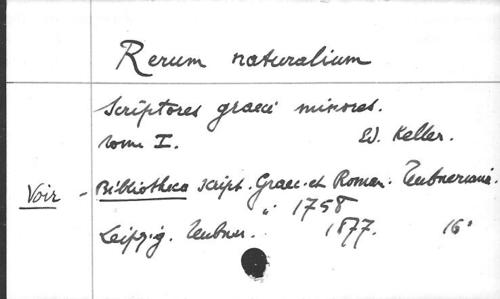 Rerum naturalium
Scriptores graeci minores.
tome I. Ed. Keller.
Voir - Bibliotheca script. Graec. et Roman. Teubneriana.
" 1758
Leipzig. Teubner. 1877. 16°